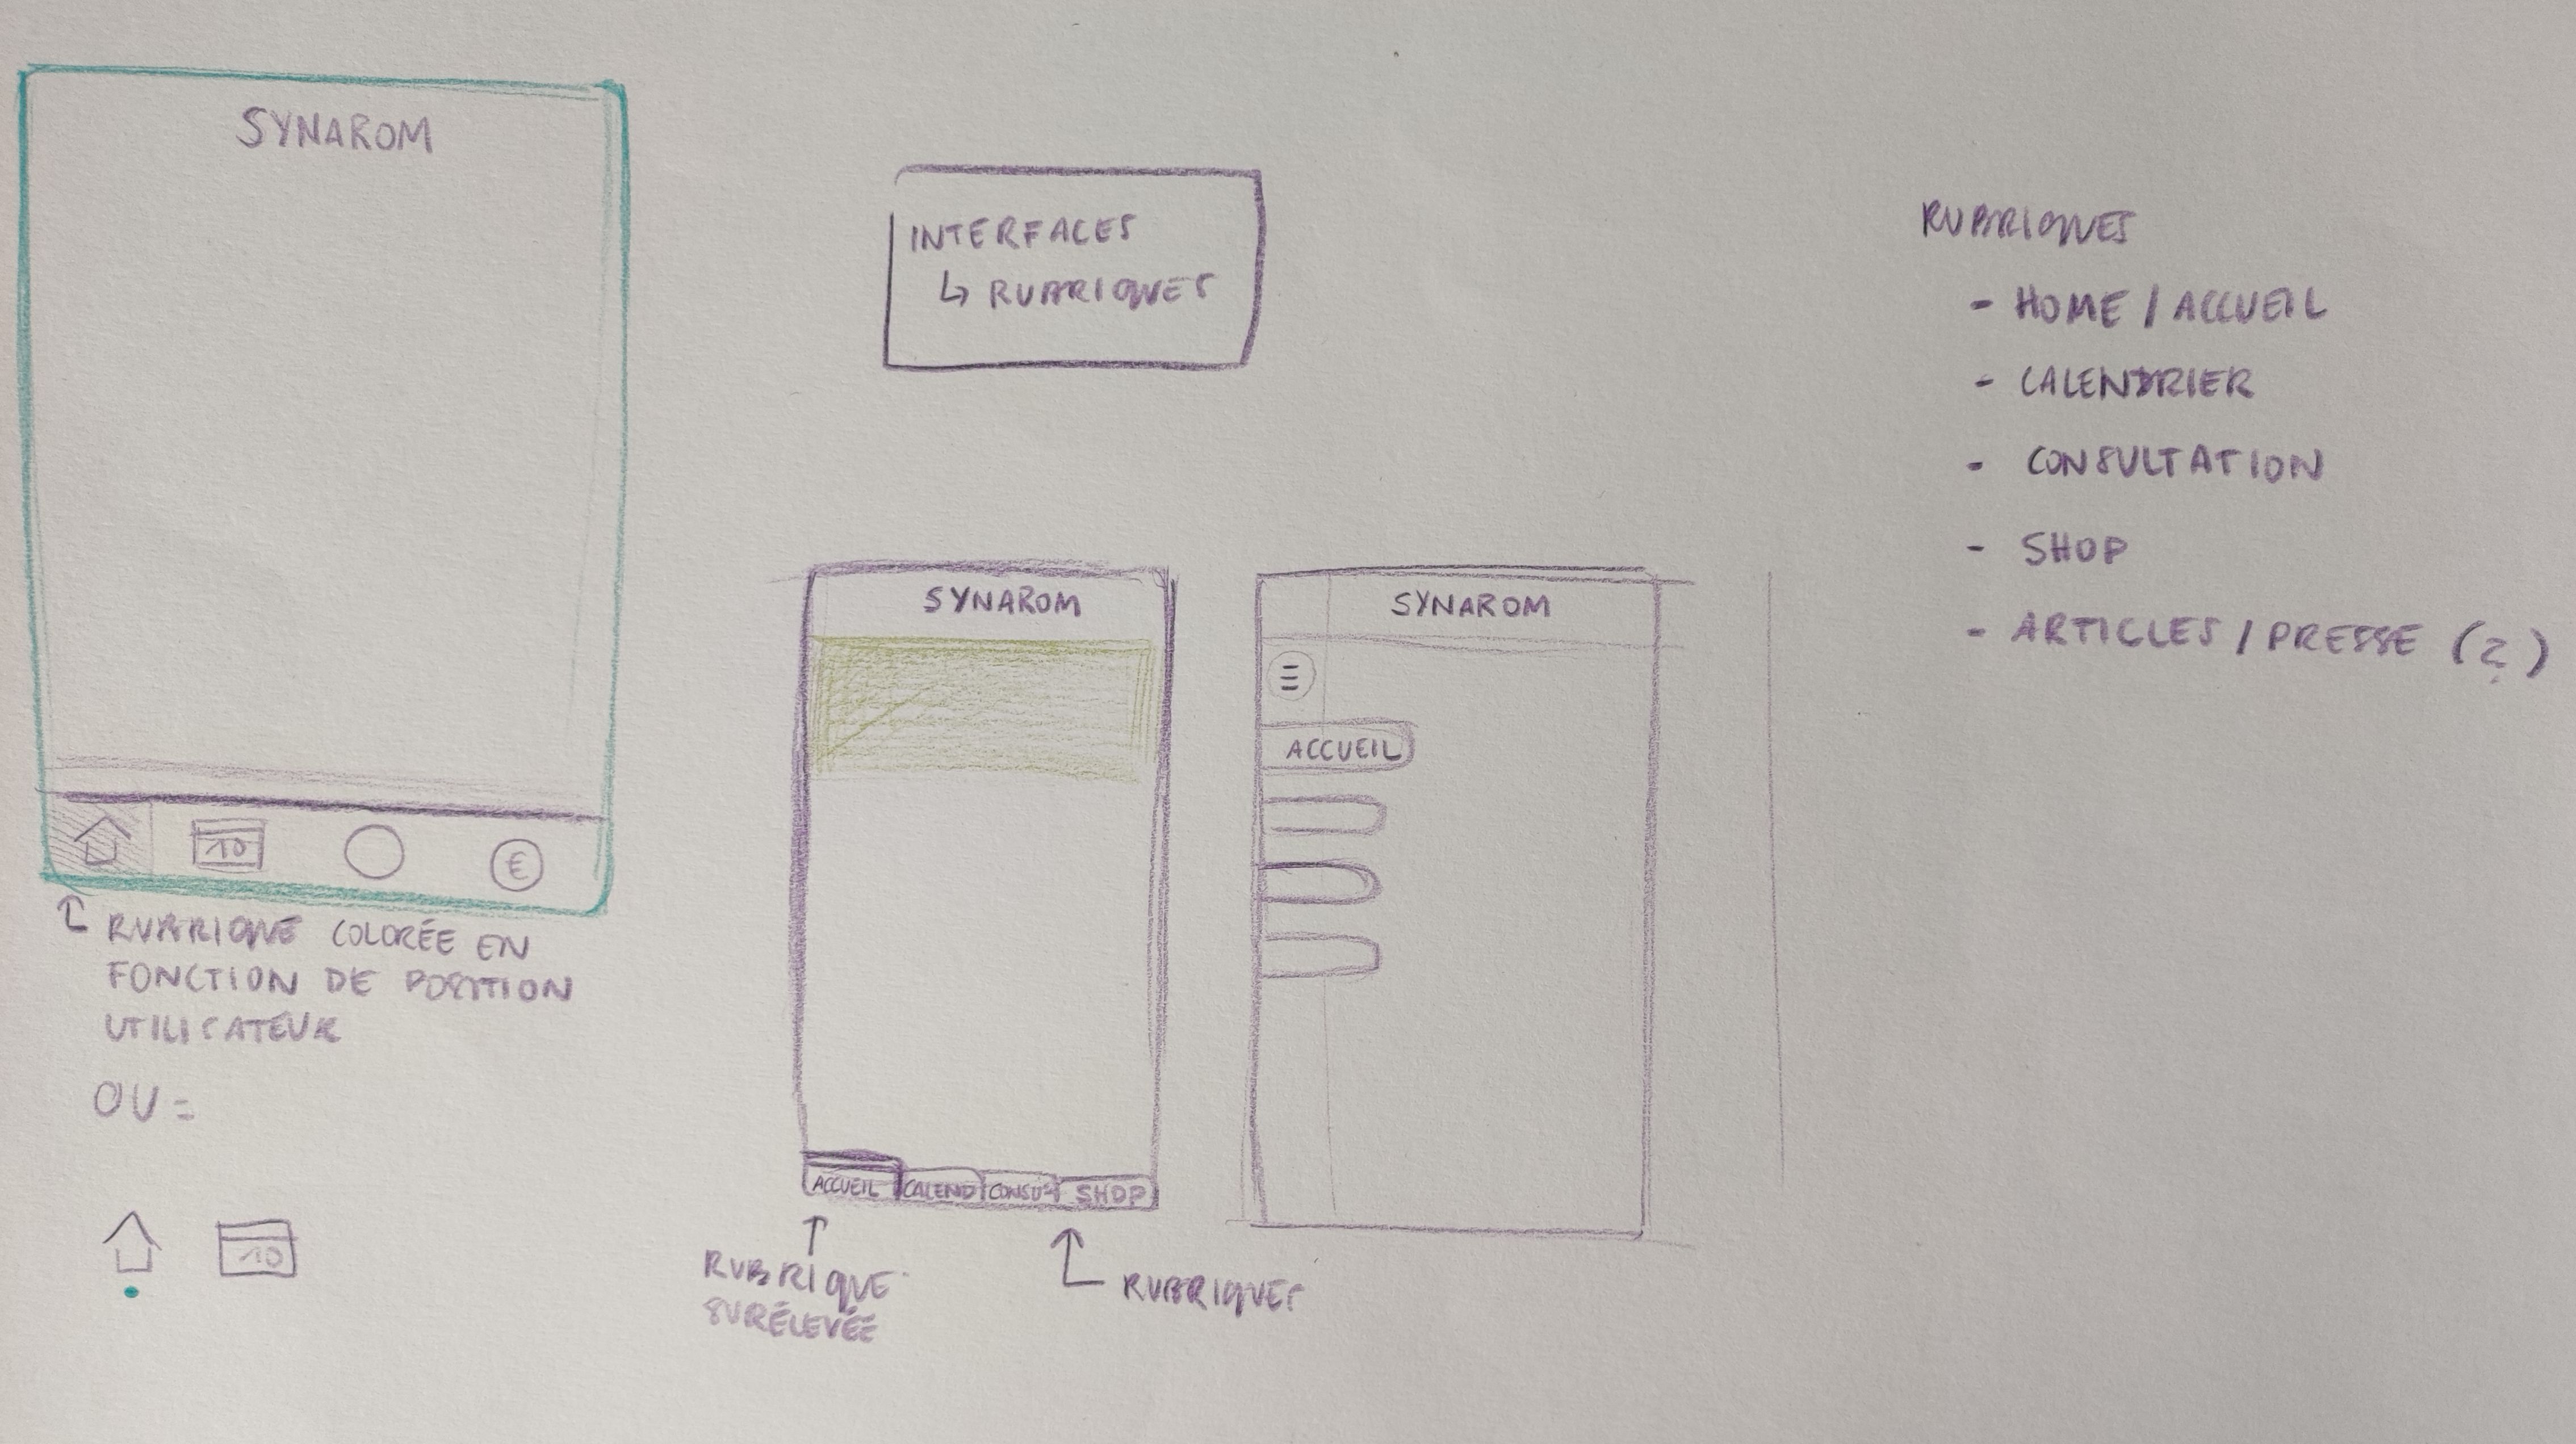 SYNAROM
10
€
RUBRIQUE COLORÉE EN
FONCTION DE POSITION
UTILISATEUR
OU =
10
INTERFACES
↳ RUBRIQUES
SYNAROM
ACCUEIL CALEND CONSULT SHOP
RUBRIQUE
SURÉLEVÉE
RUBRIQUES
SYNAROM
ACCUEIL
RUBRIQUES
- HOME / ACCUEIL
- CALENDRIER
- CONSULTATION
- SHOP
- ARTICLES / PRESSE (?)